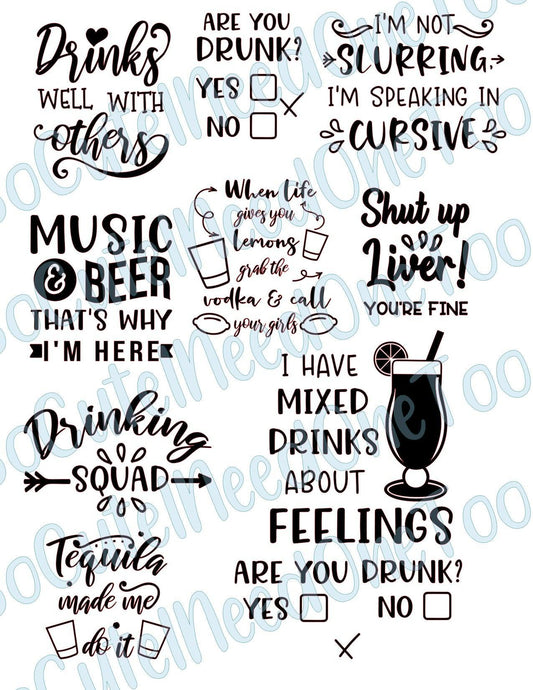 Drinks
WELL WITH
others
ARE YOU
DRUNK?
YES
NO
I'M NOT
SLURRING,
I'M SPEAKING IN
CURSIVE
MUSIC
& BEER
THAT'S WHY
I'M HERE
When life
gives you
lemons
grab the
vodka & call
your girls
Shut up
Liver!
YOU'RE FINE
I HAVE
MIXED
DRINKS
ABOUT
FEELINGS
Drinking
SQUAD
Tequila
made me
do it
ARE YOU DRUNK?
YES NO
SoCuteINeedOneToo